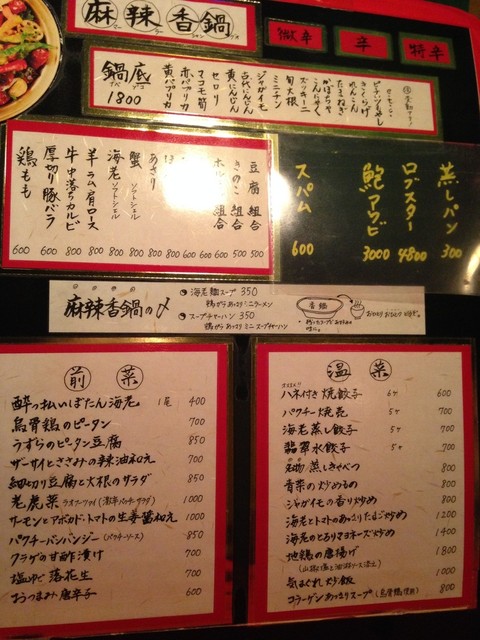 麻辣香鍋
微辛
辛
特辛
鍋底
1800
黄パプリカ
赤パプリカ
マコモ筍
セロリ
黄にんじん
古代にんじん
ジャガイモ
ミニチンゲン
旬大根
ズッキーニ
こんにゃく
かぼちゃ
たまねぎ
れんこん
きくらげ
鶏もも 600
厚切り豚バラ 600
牛中落ちカルビ 800
羊ラム肩ロース 800
海老ソフトシェル 800
蟹ソフトシェル 800
あさり
きのこ組合 500
豆腐組合 500
スパム 600
鮑アワビ 3000
ロブスター 4800
蒸しパン 300
麻辣香鍋の〆
海老麺スープ 350
鶏がらあっさりミニラーメン
スープチャーハン 350
鶏がらあっさりミニスープチャーハン
香鍋
前菜
酔っ払いぼたん海老 1尾 400
烏骨鶏のピータン 700
うずらのピータン豆腐 850
ザーサイとささみの辣油和え 700
細切り豆腐と大根のサラダ 850
老虎菜 ラオフーツァイ 1000
サーモンとアボカド・トマトの生姜醤和え 1000
パクチーバンバンジー (パクチーソース) 850
クラゲの甘酢漬け 700
塩ゆで落花生 700
おつまみ唐辛子 600
温菜
オススメ!!
ハネ付き焼餃子 6ケ 600
パクチー焼売 5ケ 700
海老蒸し餃子 5ケ 700
翡翠水餃子 5ケ 700
名物 蒸しきゃべつ 800
青菜の炒めもの 800
ジャガイモの香り炒め 800
海老とトマトのあっさりたまご炒め 1200
海老のとろりマヨネーズ炒め 1400
地鶏の唐揚げ 1800
気まぐれ炒飯 1000
コラーゲンあっさりスープ (烏骨鶏使用) 800